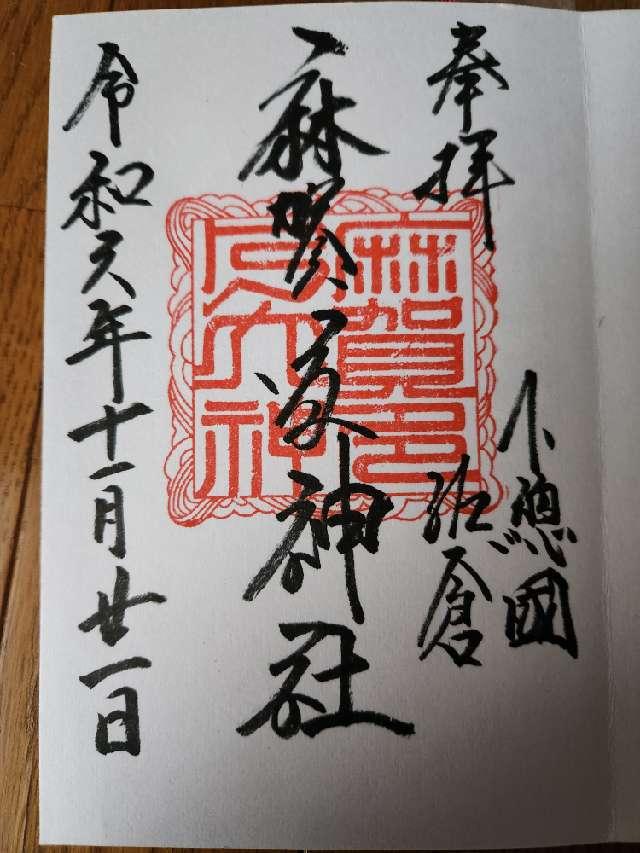 奉拝
下總國
佐倉
麻賀多神社
麻賀多
令和元年十一月廿一日